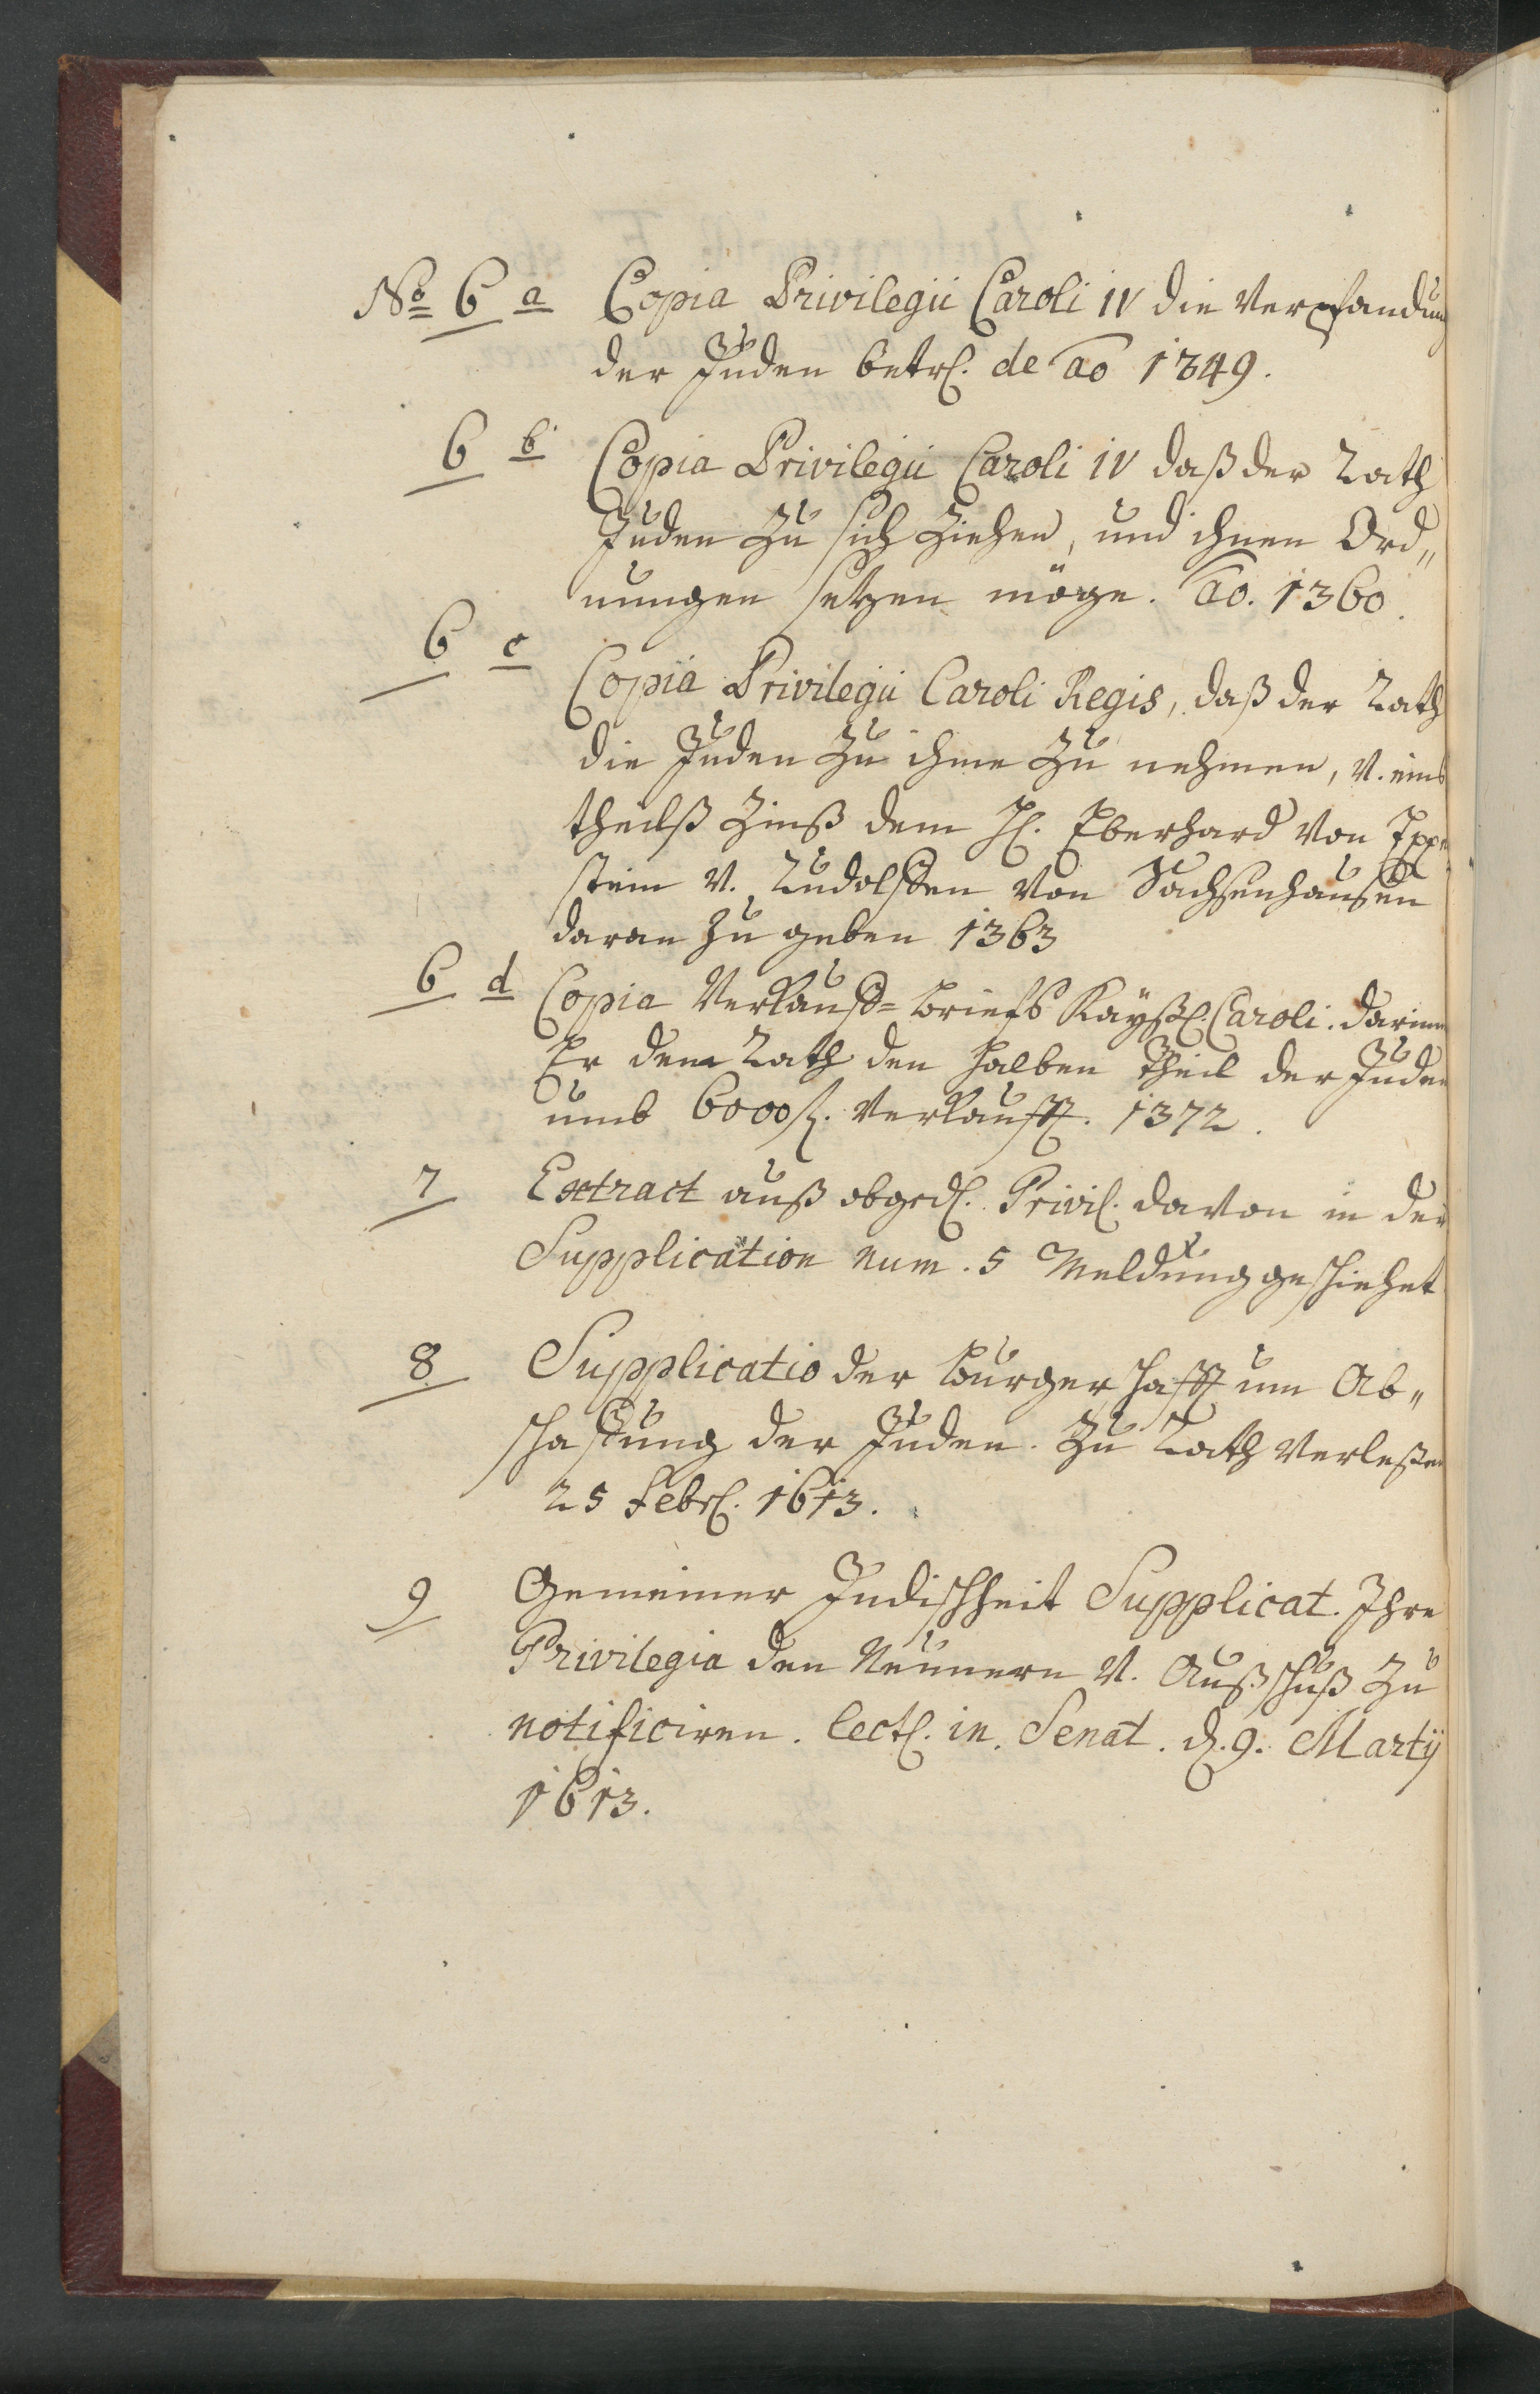 No 6 a Copia Privilegii Caroli IV die Verpfandung
der Juden betrl. de ao 1349.
6 b Copia Privilegii Caroli IV daß der Rath
Juden zu sich ziehen, und ihnen Ord„
nungen setzen möge. ao. 1360.
6 c Copia Privilegii Caroli Regis, daß der Rath
die Juden zu ihme zu nehmen, v. eines
theilß Zinß dem H. Eberhard von Epp„
stein v. Rudolffen von Sachsenhausen
daran zu geben 1363
6 d Copia Verkauff=briefs Kayßl. Caroli. darinn
Er dem Rath den halben Theil der Juden
umb 6000 fl. verkaufft. 1372.
7 Extract auß obged. Privil. davon in der
Supplication num. 5 Meldung geschiehet
8 Supplicatio der burgerschafft um Ab„
schaffung der Juden. Zu Rath verleßen
25 Febr. 1613.
9 Gemeiner Judischheit Supplicat. Ihre
Privilegia den Neunern v. Außschuß zu
notificiren. lect. in Senat. d. 9. Martij
1613.